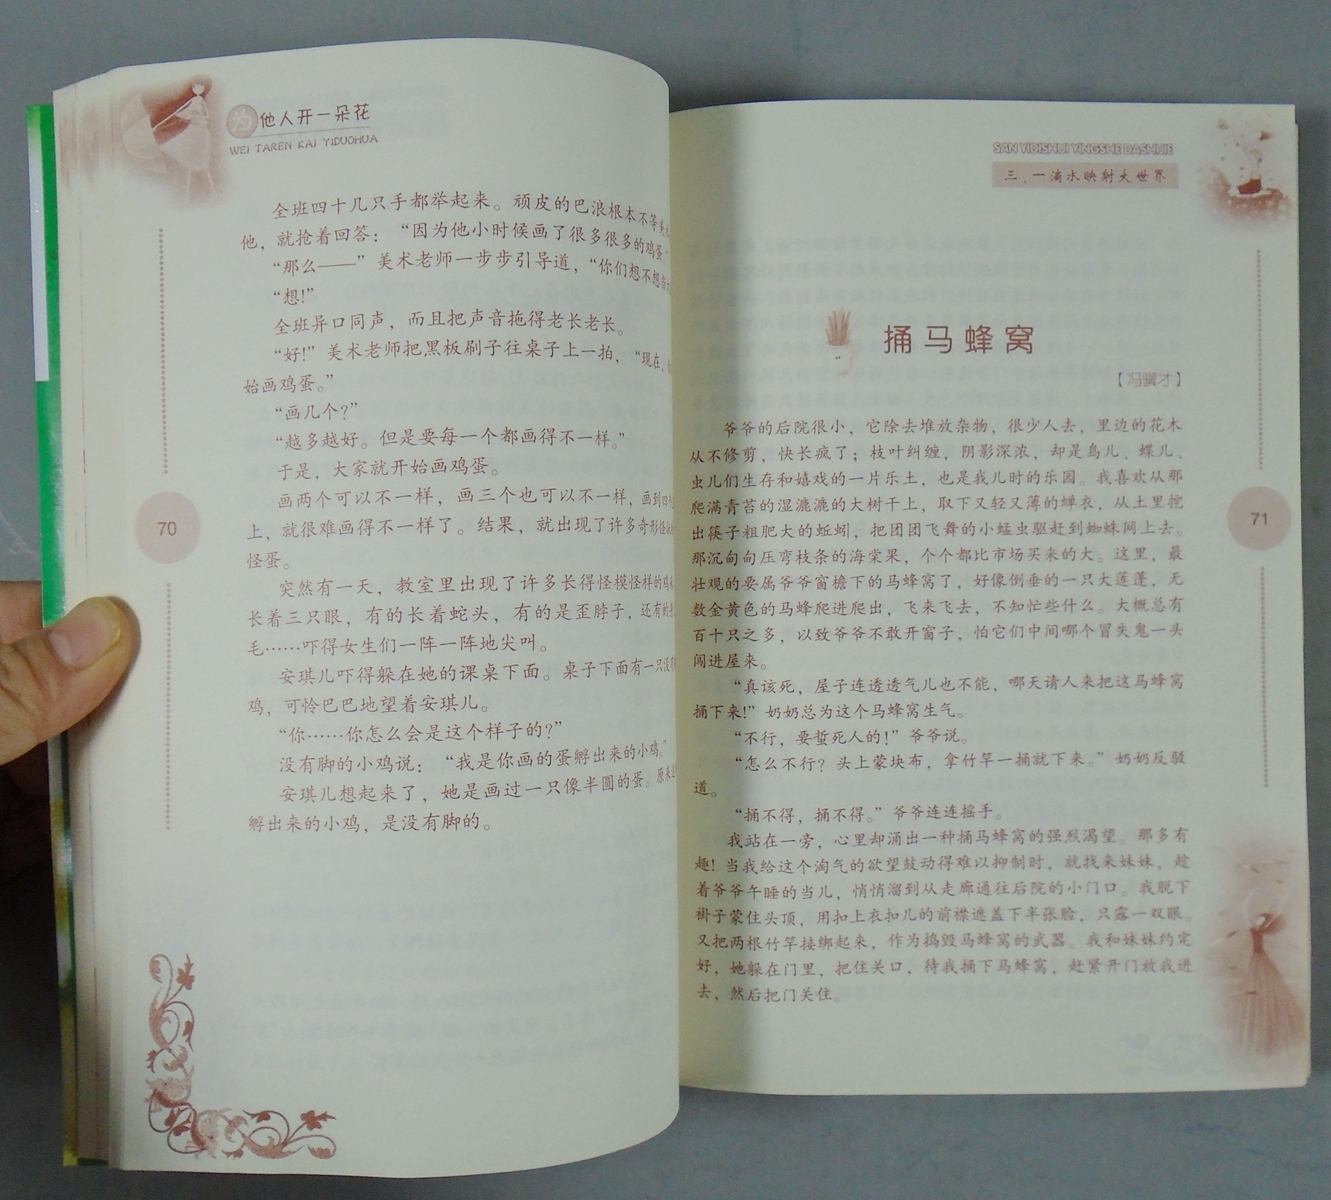 为他人开一朵花
WEI TAREN KAI YIDUOHUA
全班四十几只手都举起来。顽皮的巴浪根本不等美
他，就抢着回答：“因为他小时候画了很多很多的鸡蛋。”
“那么——”美术老师一步步引导道，“你们想不想当
“想！”
全班异口同声，而且把声音拖得老长老长。
“好！”美术老师把黑板刷子往桌子上一拍，“现在，
始画鸡蛋。”
“画几个？”
“越多越好。但是要每一个都画得不一样。”
于是，大家就开始画鸡蛋。
画两个可以不一样，画三个也可以不一样，画到四
上，就很难画得不一样了。结果，就出现了许多奇形怪
怪蛋。
突然有一天，教室里出现了许多长得怪模怪样的鸡
长着三只眼，有的长着蛇头，有的是歪脖子，还有的
毛……吓得女生们一阵一阵地尖叫。
安琪儿吓得躲在她的课桌下面。桌子下面有一只没
鸡，可怜巴巴地望着安琪儿。
“你……你怎么会是这个样子的？”
没有脚的小鸡说：“我是你画的蛋孵出来的小鸡。”
安琪儿想起来了，她是画过一只像半圆的蛋。原来
孵出来的小鸡，是没有脚的。
70
SAN YIDISHUI YINGSHE DASHIJIE
三、一滴水映射大世界
捅马蜂窝
【冯骥才】
爷爷的后院很小，它除去堆放杂物，很少人去，里边的花木
从不修剪，快长疯了；枝叶纠缠，阴影深浓，却是鸟儿、蝶儿、
虫儿们生存和嬉戏的一片乐土，也是我儿时的乐园。我喜欢从那
爬满青苔的湿漉漉的大树干上，取下又轻又薄的蝉衣，从土里挖
出筷子粗肥大的蚯蚓，把团团飞舞的小蜢虫驱赶到蜘蛛网上去。
那沉甸甸压弯枝条的海棠果，个个都比市场买来的大。这里，最
壮观的要属爷爷窗檐下的马蜂窝了，好像倒垂的一只大莲蓬，无
数金黄色的马蜂爬进爬出，飞来飞去，不知忙些什么。大概总有
百十只之多，以致爷爷不敢开窗子，怕它们中间哪个冒失鬼一头
闯进屋来。
“真该死，屋子连透透气儿也不能，哪天请人来把这马蜂窝
捅下来！”奶奶总为这个马蜂窝生气。
“不行，要蜇死人的！”爷爷说。
“怎么不行？头上蒙块布，拿竹竿一捅就下来。”奶奶反驳
道。
“捅不得，捅不得。”爷爷连连摇手。
我站在一旁，心里却涌出一种捅马蜂窝的强烈渴望。那多有
趣！当我给这个淘气的欲望鼓动得难以抑制时，就找来妹妹，趁
着爷爷午睡的当儿，悄悄溜到从走廊通往后院的小门口。我脱下
褂子蒙住头顶，用扣上衣扣儿的前襟遮盖下半张脸，只露一双眼。
又把两根竹竿接绑起来，作为捣毁马蜂窝的武器。我和妹妹约定
好，她躲在门里，把住关口，待我捅下马蜂窝，赶紧开门放我进
去，然后把门关住。
71